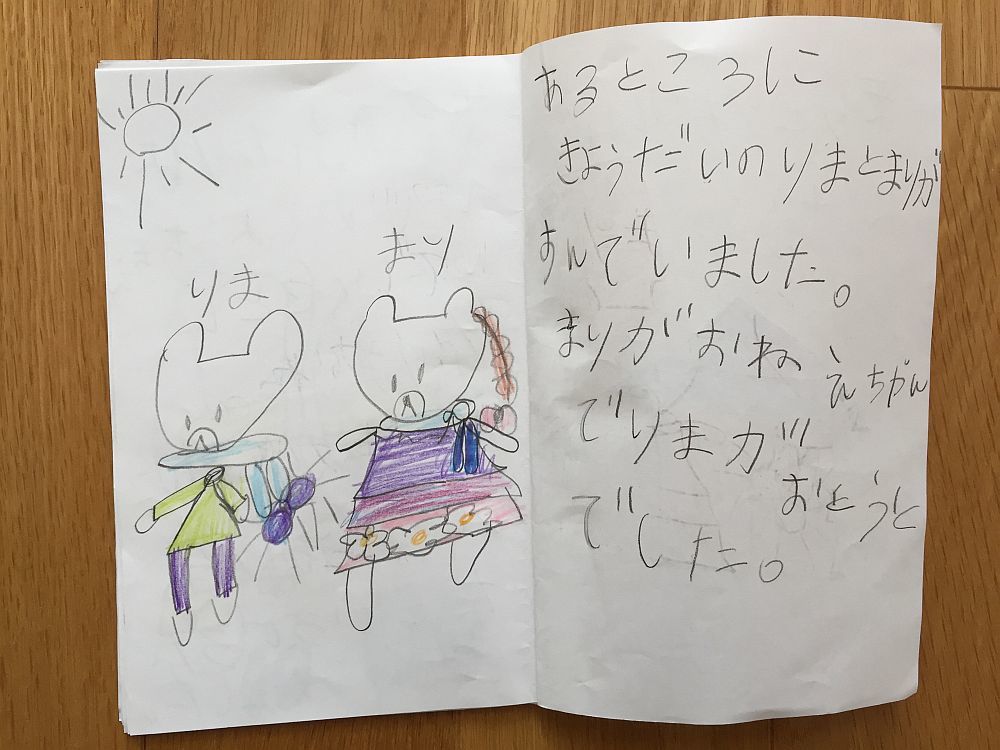 りま
まり
あるところに
きょうだいのりまとまりが
すんでいました。
まりがおねえちゃん
でりまが
おとうと
でした。